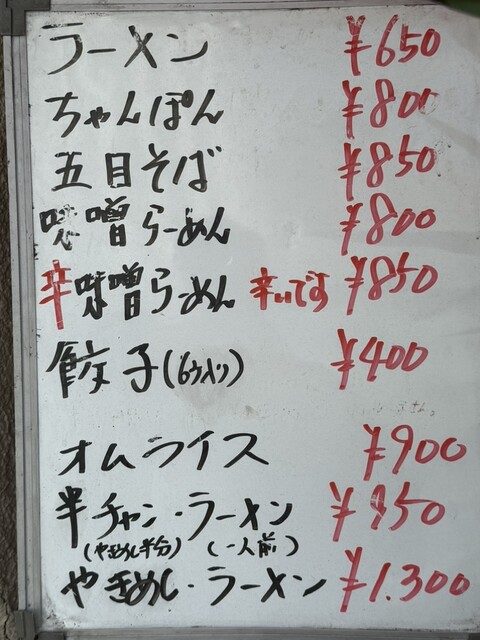 ラーメン ¥650
ちゃんぽん ¥800
五目そば ¥850
味噌らーめん ¥800
辛味噌らーめん 辛いです ¥850
餃子(6ヶ入り) ¥400
オムライス ¥900
半チャン・ラーメン ¥950
(やきめし半分) (一人前)
やきめし・ラーメン ¥1.300